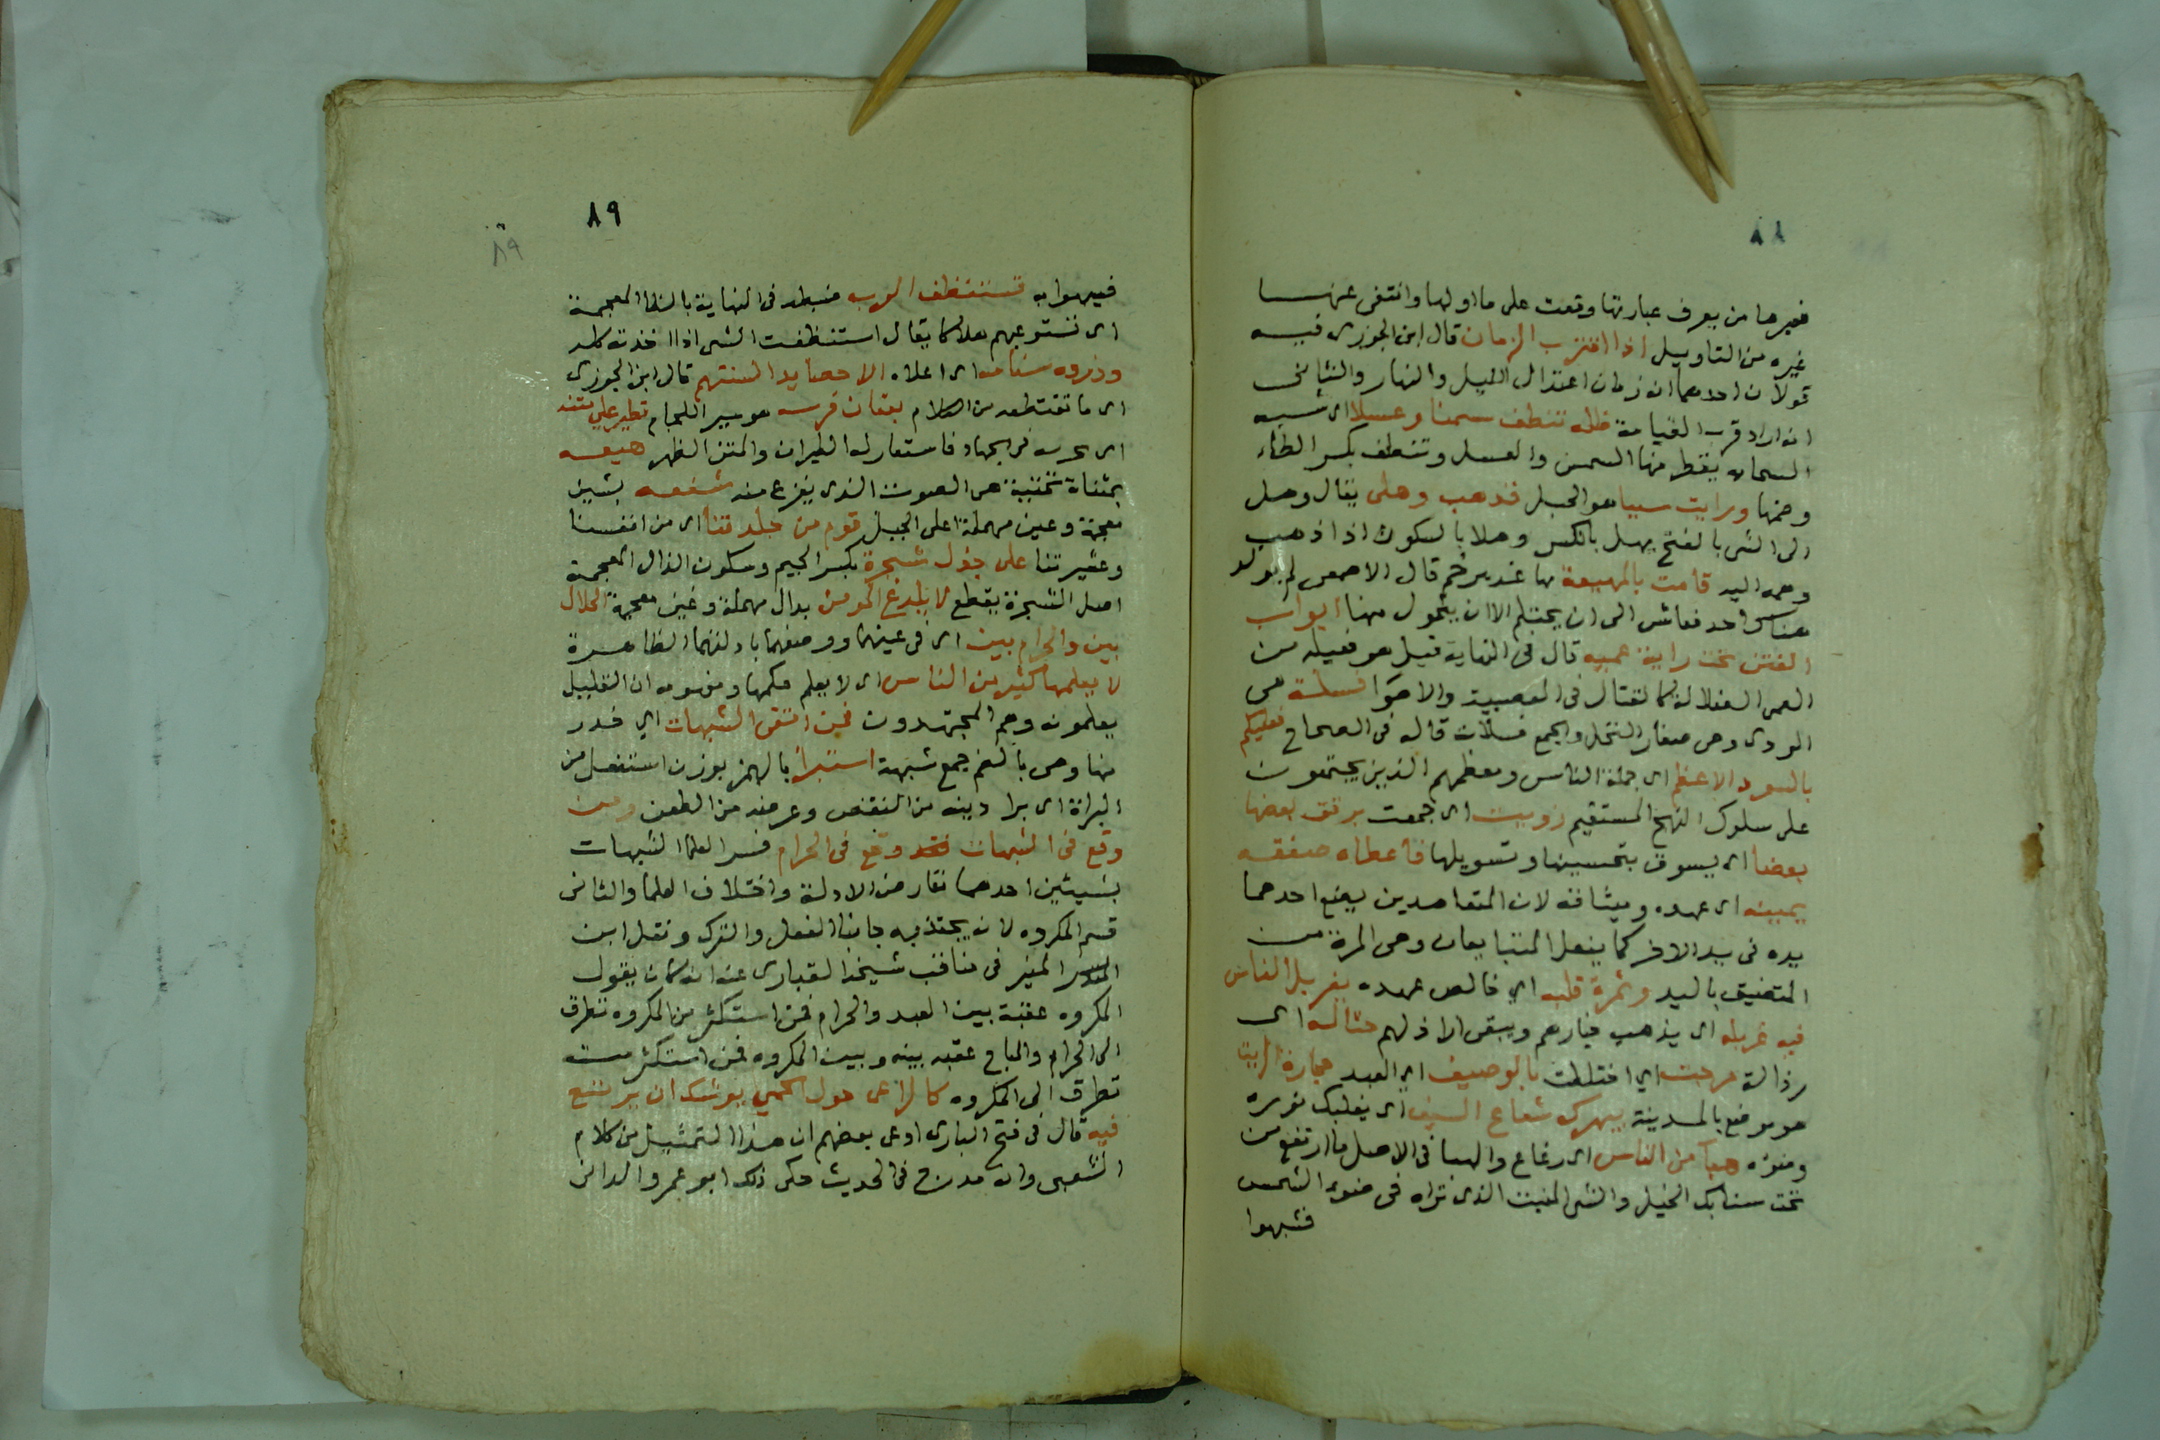 ٨٨
فعبرها من يعرف عبارتها وقعت على ما اولها وانتفى عنها
غيره من التاويل اذا اقترب الزمان قال ابن الجوزى فيه
قولان احدهما ان زمان اعتدال الليل والنهار والثانى
انه اراد قرب القيامة ظلة تنطف سمنا وعسلا اى شبه
السحاب يقطر منها السمن والعسل وتنطف بكسر الطاء
وضمها ورايت سببا هو الحبل فذهب وهلى يقال وهل
الى الشى بالفتح يهل بالكسر وهلا بالسكون اذا ذهب
وهمه اليه قامت بالمهيعة بها غدير خم قال الاصمعى لم يولد
هناك احد فعاش الى ان يحتلم الا ان يتحول منها ابواب
الفتن تحت راية عمية قال فى النهاية قيل هو فعيله من
العمى الضلالة كالقتال فى العصبية والاهوا فسلة هى
الودى وهى صغار النخل والجمع فسلان قاله فى الصحاح فعليكم
بالسود الاعظم اى جملة الناس ومعظمهم الذين يجتمعون
على سلوك النهج المستقيم زويت اى جمعت يرقق بعضها
بعضا اى يسوق بتحسينها وتسويلها فاعطاه صفقه
يمينه اى عهده وميثاقه لان المتعاهدين يضع احدهما
يده فى يد الاخر كما يفعل المتبايعان وهى المرة من
التصفيق باليد وثمرة قلبه اي خالص عهده يغربل الناس
فيه غربله اى يذهب خيارهم ويبقى اراذلهم حثالة اى
رذالة مرجت اي اختلطت بالوصيف اي العبد حجارة الزيت
هو موضع بالمدينة يبهرك شعاع السيف اى يغلبك نوره
وضوءه هبآ من الناس اى رغاع والهبا فى الاصل ما ارتفع من
تحت سنابك الخيل والشى المنبث الذى تراه فى ضوء الشمس
فشبهوا
٨٩
٨٩
فيهوا به تستنظف العرب ضبطه فى النهاية بالظا المعجمة
اى تستوعبهم هلاكا يقال استنظفت الشى اذا اخذته كله
وذروه سنامه اى اعلاه الا حصايد السنتهم قال ابن الجوزى
اى ما تقتطعه من الكلام بعنان فرسه هو سير اللجام تطير على متنه
اى يجرى فى الجهاد فاستعار له الطيران والمتن الظهر هيعه
بمثناة تحتية هى الصوت الذى يفزع منه شعفه بشين
معجمة وعين مهملة اعلى الجبل قوم من جلدتنا اى من انفسنا
وعشيرتنا على جذل شجرة بكسر الجيم وسكون الذال المعجمة
اصل الشجرة يقطع لا يلدغ المومن بدال مهملة وغين معجمة الحلال
بين والحرام بين اى فى عينهما ووصفهما بادلتهما الظاهرة
لا يعلمها كثير من الناس اى لا يعلم حكمها ومفهومه ان القليل
يعلمونه وهم المجتهدون فمن اتقى الشبهات اي حذر
منها وهى بالضم جمع شبهة استبرأ بالهمز بوزن استفعل من
البراة اى برا دينه من النقص وعرضه من الطعن ومن
وقع فى الشبهات فقد وقع فى الحرام فسر العلما الشبهات
بشيئين احدهما تعارض الادلة واختلاف العلما والثانى
قسم المكروه لانه يجتذبه جانبا الفعل والترك ونقل ابن
المنير فى مناقب شيخه القبارى عنه انه كان يقول
المكروه عقبة بين العبد والحرام فمن استكثر من المكروه تطرق
الى الحرام والمباح عقبه بينه وبين المكروه فمن استكثر منه
تطرق الى المكروه كالراعى حول الحمى يوشك ان يرتع
فيه قال فى فتح البارى ادعى بعضهم ان هذا التمثيل من كلام
الشعبى وانه مدرج فى الحديث حكى ذلك ابو عمرو الدانى